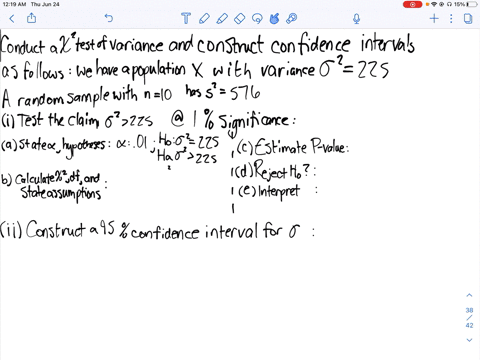 12:19 AM Thu Jun 24
15%
Conduct a χ² test of variance and construct confidence intervals
as follows: we have a population X with variance σ²=225
A random sample with n=10 has s²=576
(i) Test the claim σ²>225 @ 1% Significance:
(a) State α, hypotheses: α=.01; Ho: σ²=225
Ha σ²>225
b) Calculate χ², df, and
State assumptions :
(c) Estimate P-value:
(d) Reject Ho? :
(e) Interpret :
(ii) Construct a 95% confidence interval for σ :
38
/
42